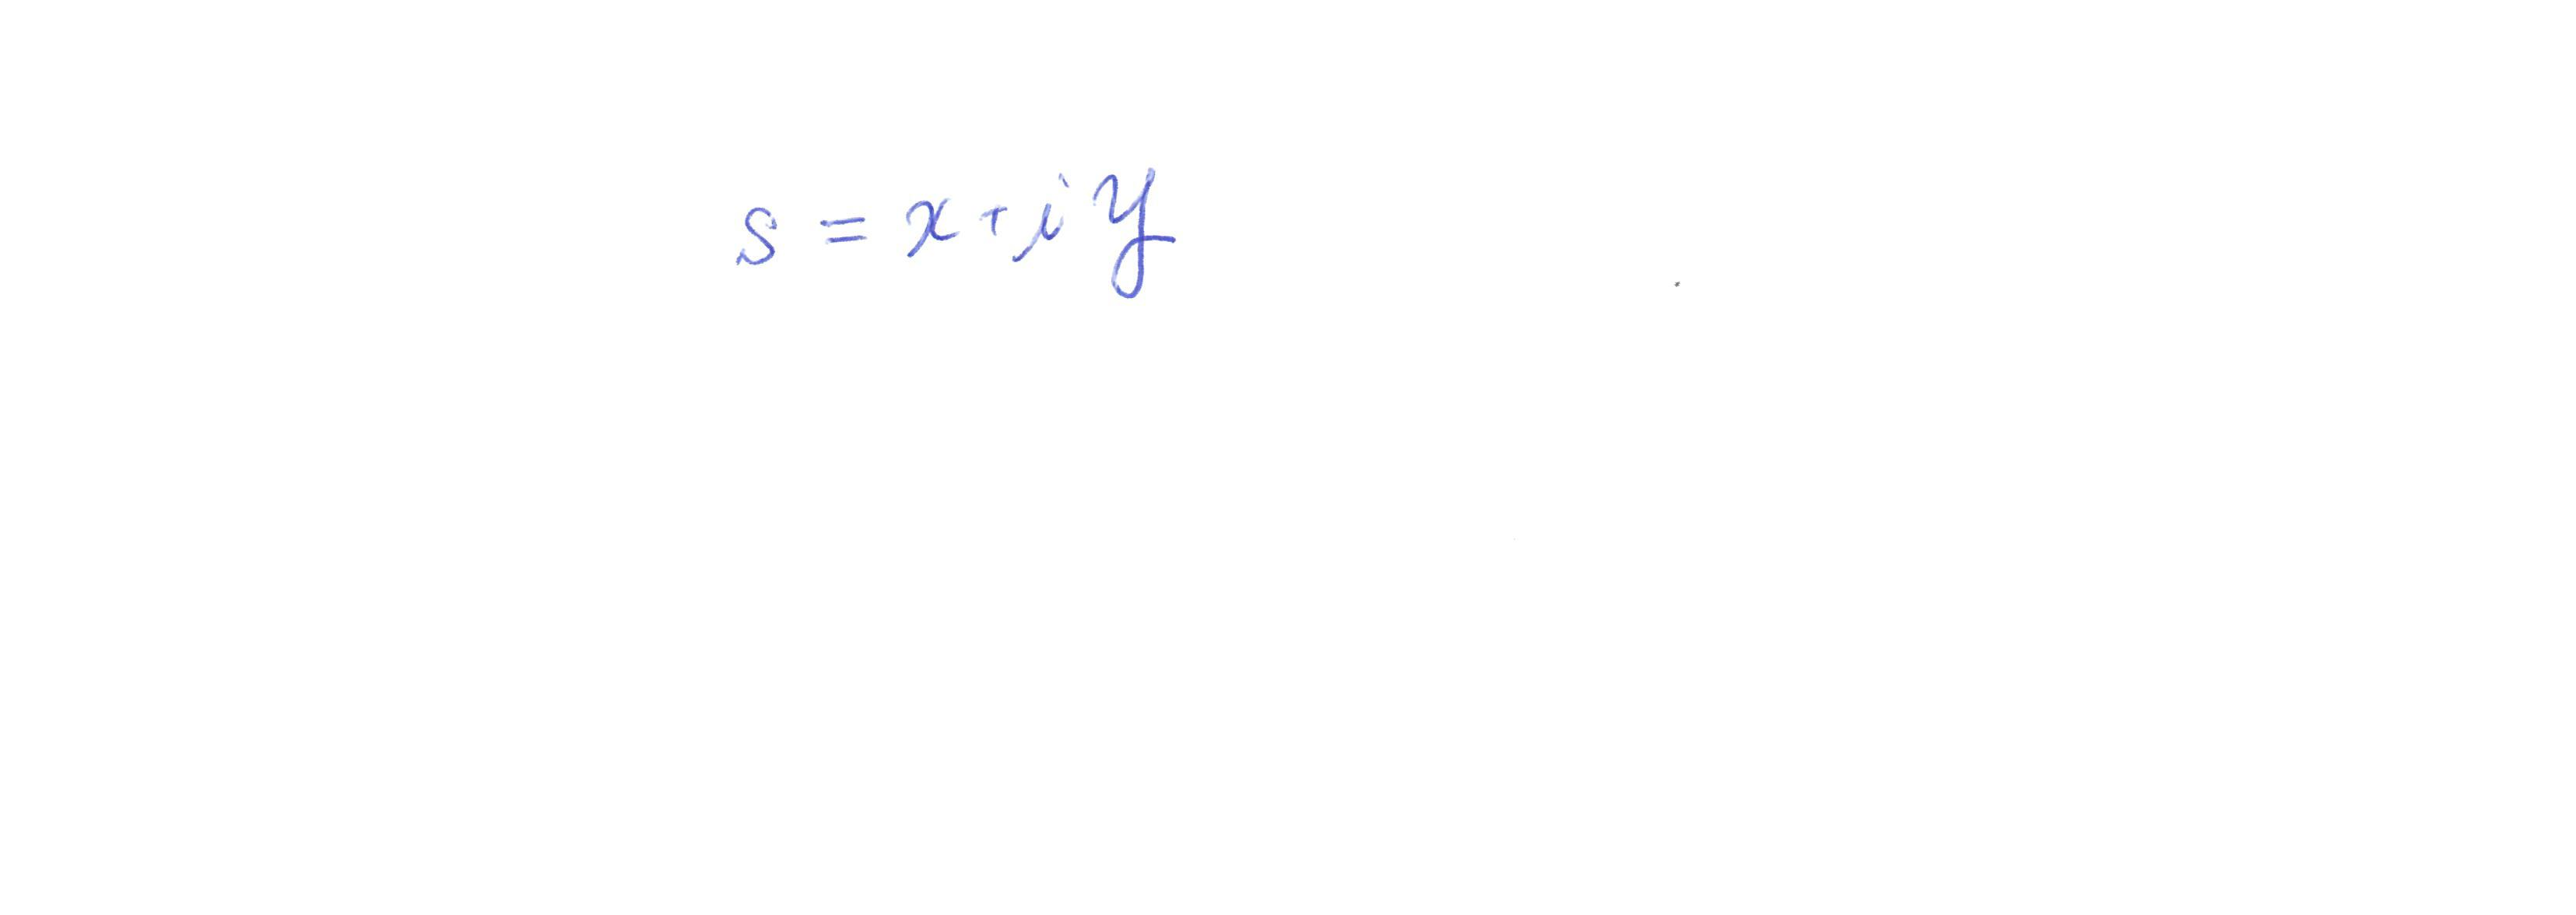 s = x + i y